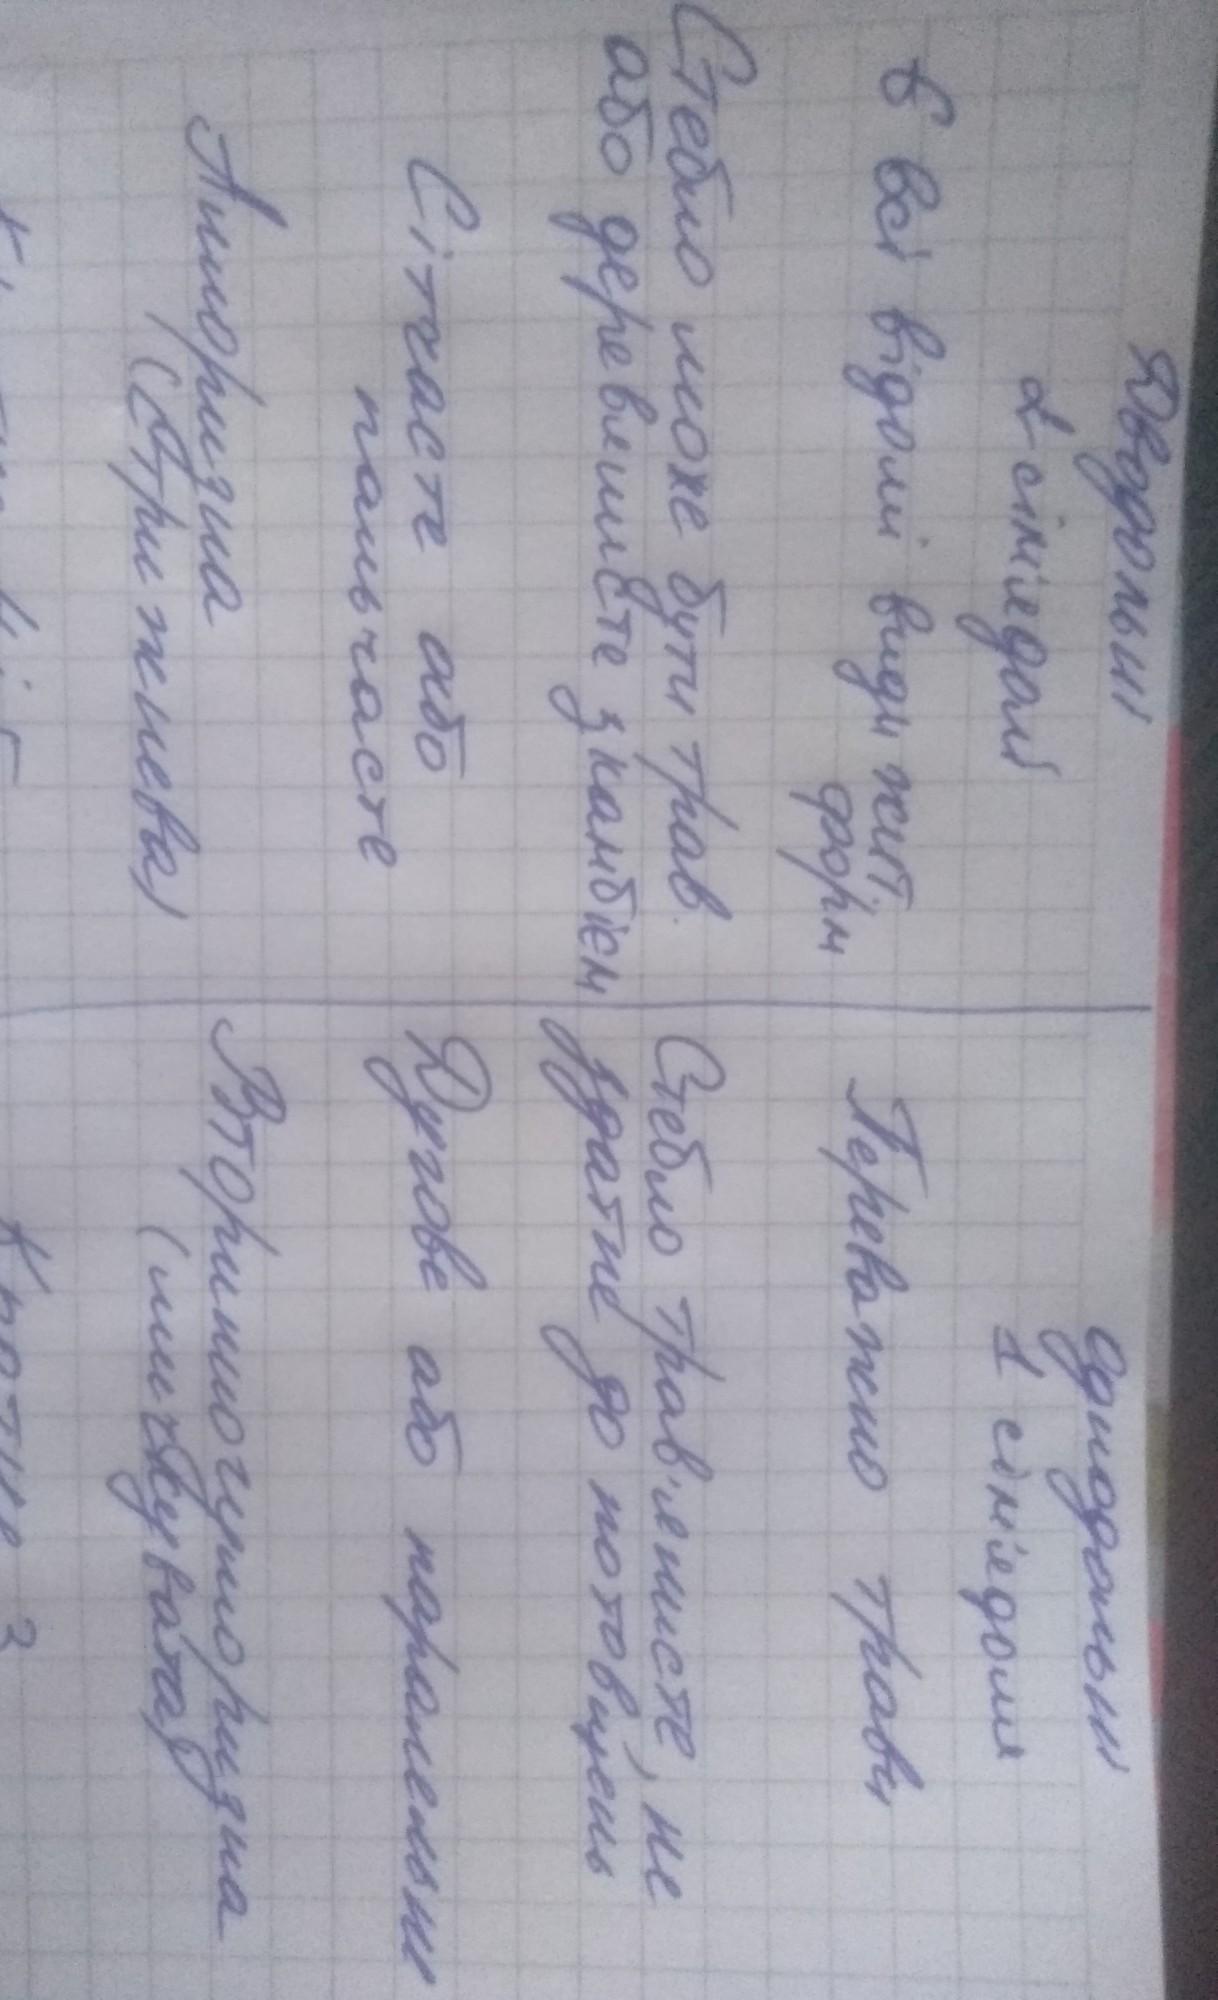 Дводольні
2-сім'ядолі
Є всі відомі види жит.
форм
Стебло може бути трав.
або дерев'янисте з камбієм
Сітчасте або
пальчасте
Алоризна
(Стрижнева)
однодольні
1 сім'ядоля
Переважно трави
Стебло трав'янисте, не
здатне до потовщень
Дугове або паралельне
Вторинногоморизна
(мичкувата)